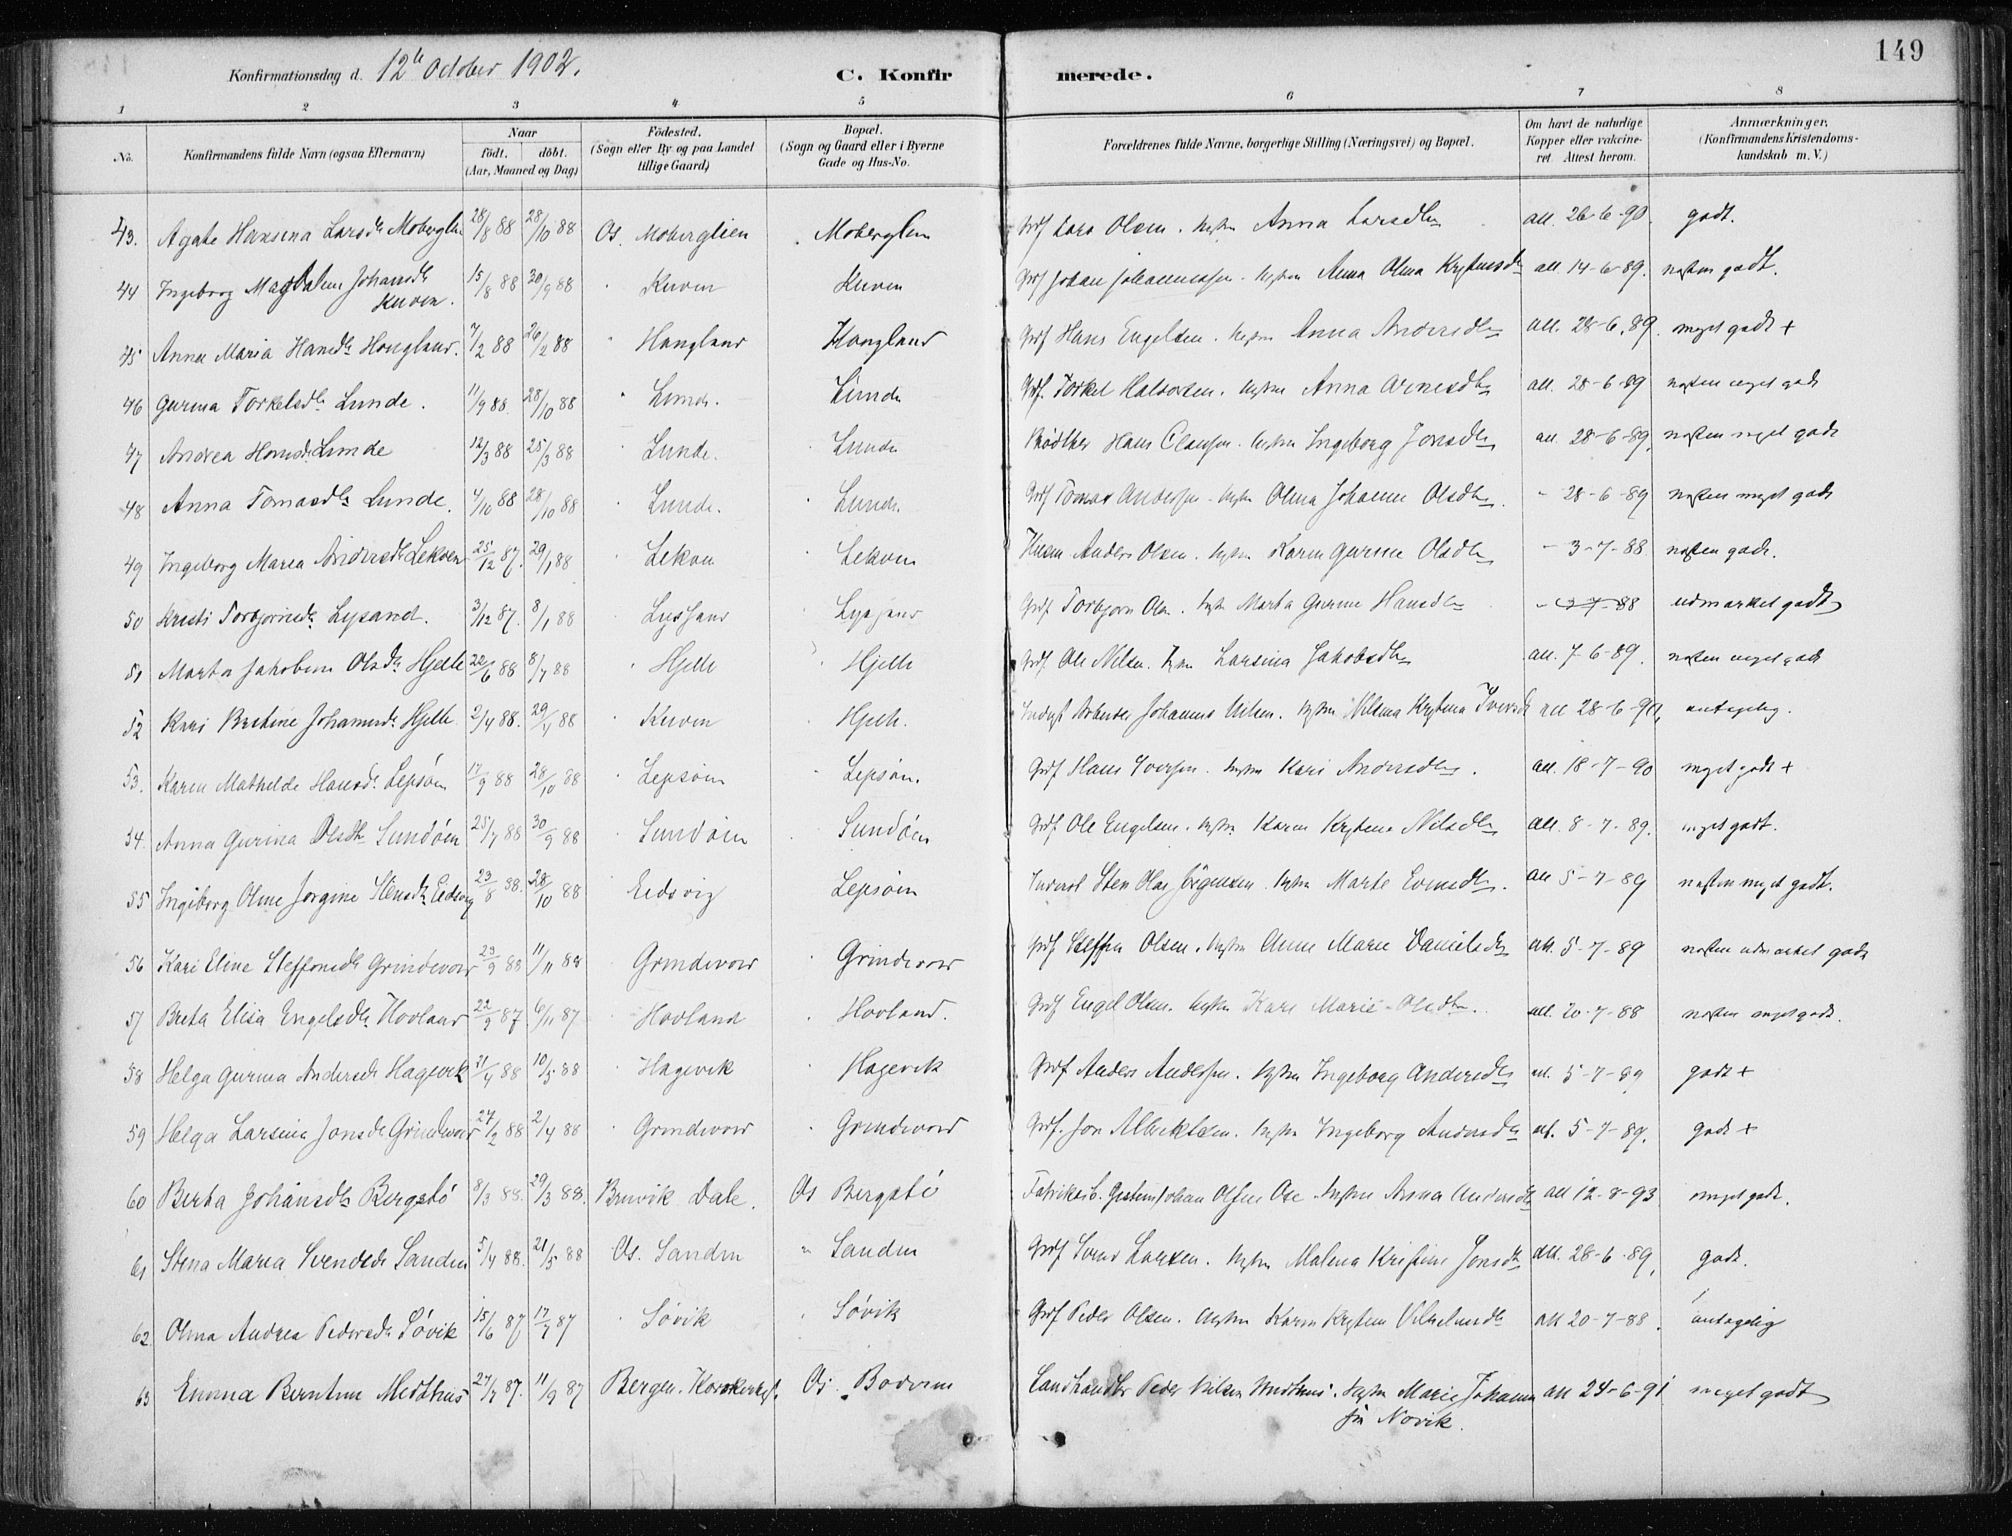 149
Konfirmationsdag d. 12te October 1902.
C. Konfirmerede.
1 2 3 4 5 6 7 8
No. Konfirmandens fulde Navn (ogsaa Efternavn) Naar födt. döbt. (Aar, Maaned og Dag) Födested. (Sogn eller By og paa Landet tillige Gaard) Bopæl. (Sogn og Gaard eller i Byerne Gade og Hus-No. Forældrenes fulde Navne, borgerlige Stilling (Næringsvei) og Bopæl. Om havt de naturlige Kopper eller vakcineret. Attest herom. Anmærkninger. (Konfirmandens Kristendomskundskab m. V.)
43. Agate Hansina Larsdtr Moberglien 28/8 88 28/10 88 Os. Moberglien Moberglien Grdf Lars Olsen. Hustru Anna Larsdtr att. 26-6-90. godt.
44 Ingeborg Magdalena Johansdtr Kuven. 15/8 88 30/9 88 Kuven Kuven Grdf Johan Johannessen. Hustru Anna Olina att 14-6-89. næsten godt.
45 Anna Maria Hansdtr Hougland. 7/2 88 26/2 88 Haugland Hougland Grdf Hans Engelsen. Hustru Anna Andersdtr att. 28-6.89. meget godt +
46 Gurina Torkelsdtr Lunde. 11/9 88. 28/10 88 Lunde. Lunde Grdf. Torkel Halvorsen. Hustru Anna Arnesdtr att. 28-6-89 næsten meget godt
47 Andrea Hansdtr Lunde 12/3 88 25/3 88 Lunde. Lunde Hans Hustru Ingeborg Jonsdtr att. 28-6-89. næsten meget godt
48 Anna Tomasdtr Lunde. 4/10 88 28/10 88 Lunde. Lunde. Grdf Tomas Andersen. Hustru Olina Johanne Olsdtr. - 28-6-89 næsten meget godt
49 Ingeborg Maria Andersdtr Lekven 25/12 87. 29/1 88 Lekven Lekven Husm Anders Olsen. Hustru Karen Gurine Olsdtr - 3-7-88 næsten godt.
50 Kristi Torbjørnsdtr Lysand. 3/12 87. 8/1 88 Lyssand Lyssand Grdf. Torbjørn Olsen. Hustru Marta Gurine Hansdtr - 3-7-88 udmærket godt
51 Marta Jakobine Olsdtr Hjelle 22/6 88 8/7 88 Hjelle Hjelle Grdf. Ole Nilsen. Hustru Larsina Jakobsdtr att. 7-6-89. næsten meget godt
52 Kari Bertine Johannesdtr Hjelle 2/4 88. 29/4 88 Kuven Hjelle. Arbeider Johannes Nilsen. Hustru Nilsina att 28-6-90. antagelig.
53. Karen Mathilde Hansdtr Lepsøen 17/9 88 28/10 88 Lepsøen Lepsøen. Grdf Hans Iversen. Hustru Kari Andersdtr. att. 18-7-90 meget godt +
54. Anna Gurina Olsdtr Sundøen 25/7 88 30/9 88 Sundøen Sundøen Grdf. Ole Engelsen. Hustru Karen Nilsdtr att. 8-7-89. meget godt.
55 Ingeborg Oline Jorgine Stensdtr Eidsvig 23/8 88. 28/10 88 Eidsvig Lepsøen Sten Olai Jørgensen. Hustru Marte att 5-7-89 næsten meget godt.
56 Kari Eline Steffensdtr Grindevold 23/9 88 11/11 88 Grindevold Grindevold Grdf Steffen Olsen. Hustru Anne Marie Danielsdtr att. 5-7-89 næsten udmærket godt
57 Breta Elisa Engelsdtr Hovland 22/9 87. 6/11 87 Hovland Hovland. Grdf Engel Olsen. Hustru Kari Marie Olsdtr. att. 20-7-88 næsten meget godt.
58 Helga Gurina Andersdtr Hagevik 21/4 88 10/5 88 Hagevik Hagevik Grdf Anders Andersen. Hustru Ingeborg Andersdtr att. 5-7-89 godt +
59 Helga Larsina Jonsdtr Grindevold 27/2 88 2/4 88 Grindevold Grindevold Grdf. Jon Hustru Ingeborg Andersdtr att. 5-7-89. godt +
60 Berta Johansdtr Bergstø 8/3 88. 29/3 88. Bruvik Dale. Os Bergstø Fabriksb. Johan Olsen Hustru Anna Andersdtr att 12-8-93 meget godt.
61 Stina Maria Svendsdtr Sanden 5/4 88. 21/5 88 Os. Sanden " Sanden Grdf Svend Larsen. Hustru Malena Kristine Jonsdtr att. 28-6-89. godt.
62 Olina Andrea Pedersdtr Søvik 15/6 87 17/7 87 Søvik Søvik Grdf Peder Olsen. Hustru Karen att 20-7-88. antagelig
63 Emma Berntine Midthus 27/7 87. 11/9 87 Bergen. Korskirket. Os. Landhandler Peder Nilsen Midthus. Hustru Marie Johanne att 24-6-91 meget godt
fø Novik.